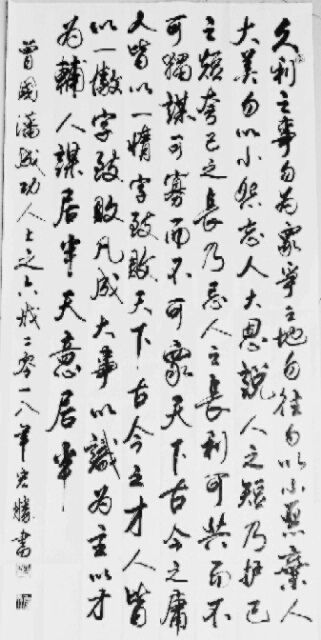 久利之事勿為眾爭之地勿往勿以小惡棄人
大美勿以小怨忘人大恩說人之短乃护己
之短夸己之長乃忌人之長利可共而不
可獨謀可寡而不可眾天下古今之庸
人皆以一惰字致敗天下古今之才人皆
以一傲字致敗凡成大事以識為主以才
為輔人謀居半天意居半
曾國藩成功人士之六戒二零一八年宏勝書